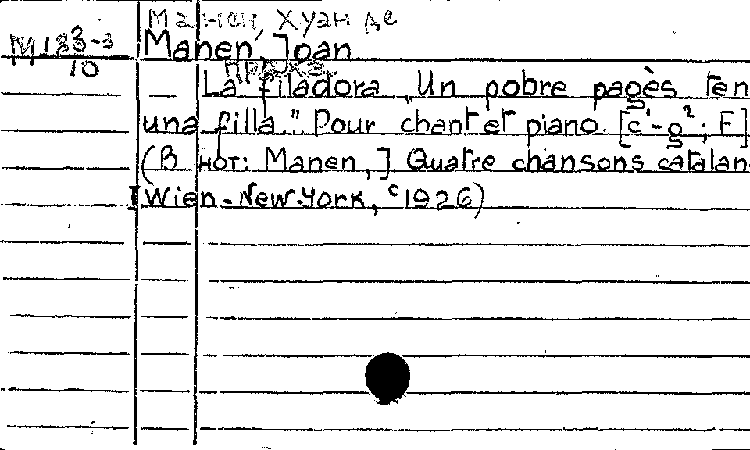 Манен, Хуан де
М 183-3 Manen, Joan
10
— La filadora „Un pobre pagès ten
una filla." Pour chant et piano. [c¹-g²; F]
(В нот: Manen, J Quatre chansons catalan
Wien-New-York, ᶜ1926)